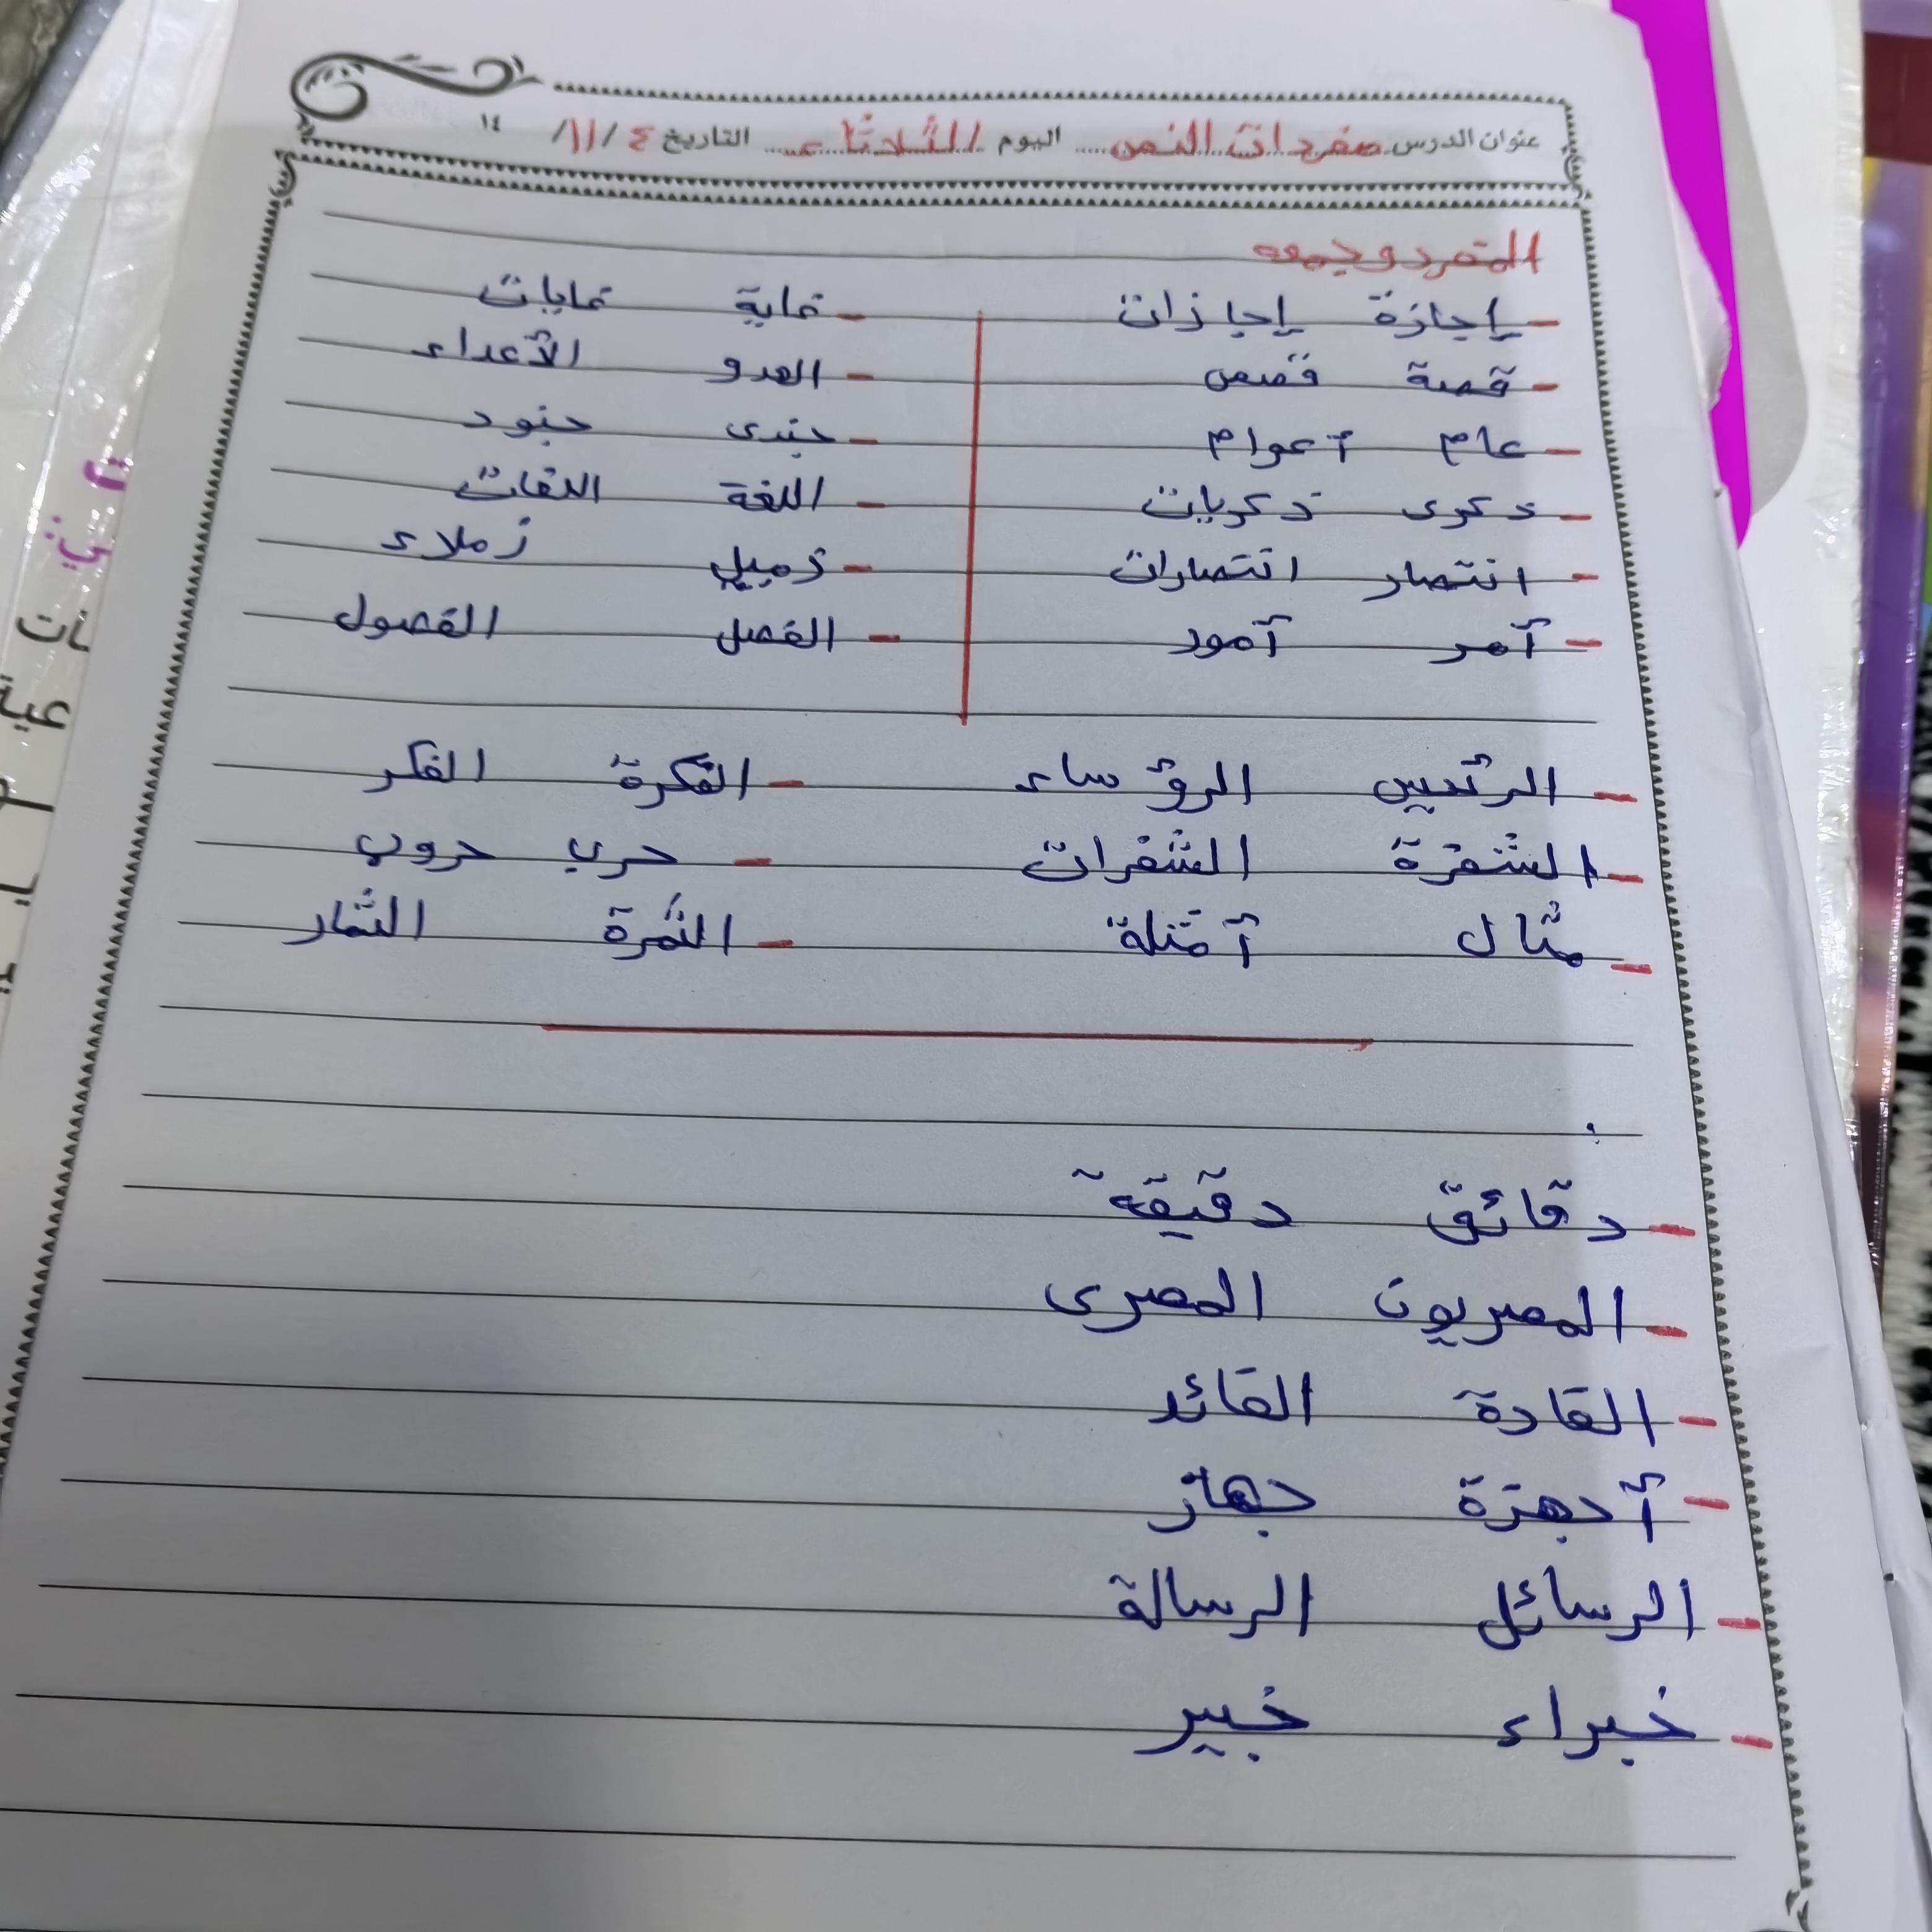 عنوان الدرس مفردات النص اليوم الثلاثاء التاريخ ٤ / ١١ / ١٤
المفرد وجمعه
- إجازة إجازات - غاية غايات
- قصة قصص - العدو الأعداء
- عام أعوام - جندى جنود
- ذكرى ذكريات - اللغة اللغات
- انتصار انتصارات - زميل زملاء
- أمر أمور - الفصل الفصول
- الرئيس الرؤساء - الفكرة الفكر
- الشفرة الشفرات - حرب حروب
- مثال أمثلة - الثمرة الثمار
- دقائق دقيقة
- المصريون المصرى
- القادة القائد
- أجهزة جهاز
- الرسائل الرسالة
- خبراء خبير
ات
عية